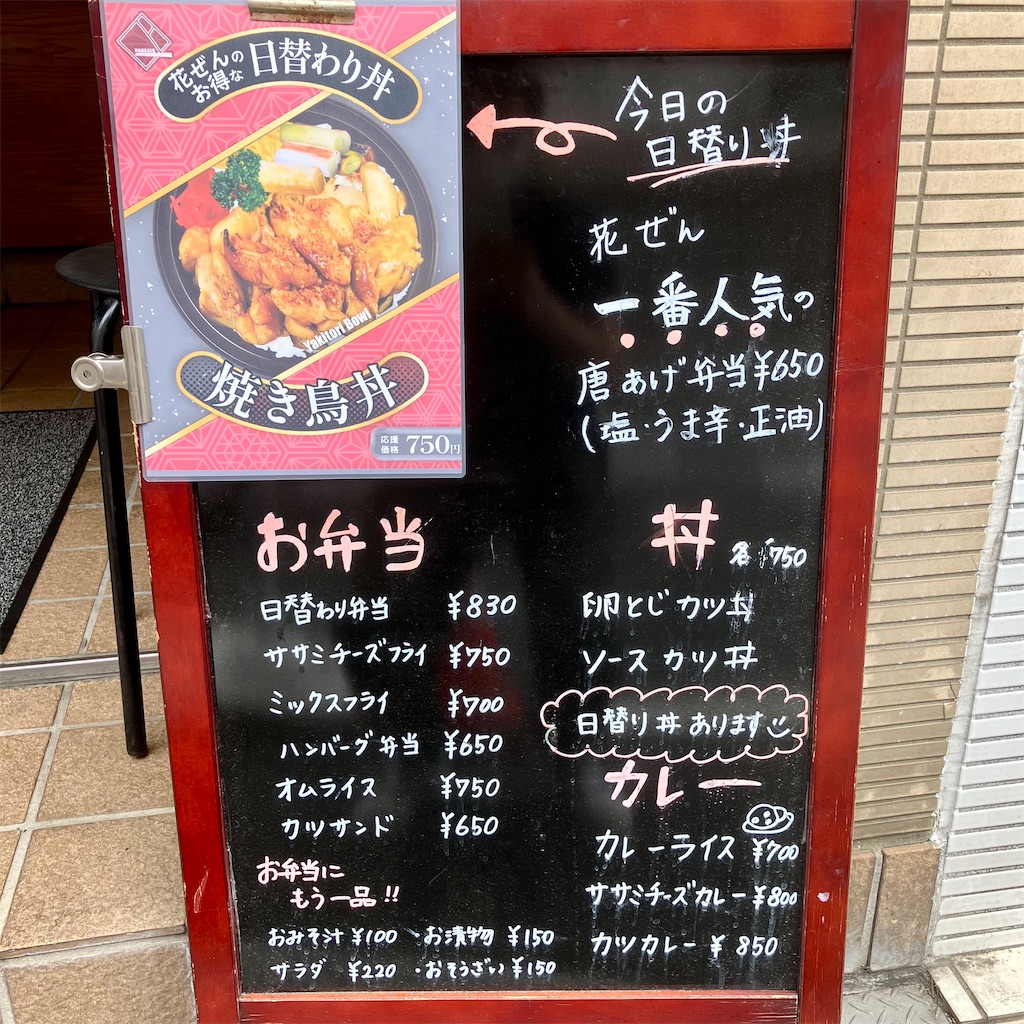 HANAZEN
花ぜんの
お得な
日替わり丼
Yakitori Bowl
焼き鳥丼
応援
価格 750円
今日の
日替り丼
花ぜん
一番人気の
唐あげ弁当¥650
(塩・うま辛・正油)
お弁当
日替わり弁当 ¥830
ササミチーズフライ ¥750
ミックスフライ ¥700
ハンバーグ弁当 ¥650
オムライス ¥750
カツサンド ¥650
お弁当に
もう一品!!
おみそ汁 ¥100 ・お漬物 ¥150
サラダ ¥220 ・おそうざい ¥150
丼 各 ¥750
卵とじカツ丼
ソースカツ丼
日替り丼あります
カレー
カレーライス ¥700
ササミチーズカレー ¥800
カツカレー ¥850